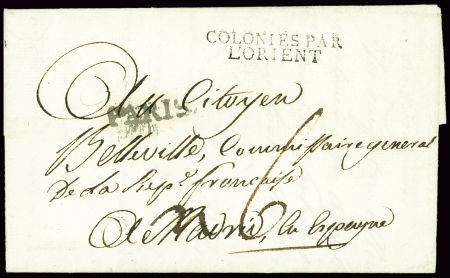 COLONIES PAR
L'ORIENT
Au Citoyen
PARIS
Belleville, Commissaire general
De la Rep.e francaise
A Madrid, en Espagne